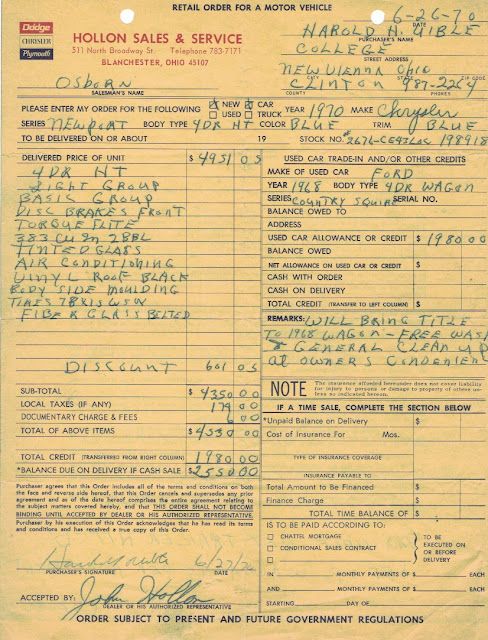 RETAIL ORDER FOR A MOTOR VEHICLE
Dodge
CHRYSLER
Plymouth
HOLLON SALES & SERVICE
511 North Broadway St. Telephone 783-7171
BLANCHESTER, OHIO 45107
6-26-70
DATE
HAROLD H. UIBLE
PURCHASER'S NAME
COLLEGE
STREET ADDRESS
NEW VIENNA OHIO
CITY STATE ZIP CODE
CLINTON 987-2264
COUNTY PHONES
OSBORN
SALESMAN'S NAME
PLEASE ENTER MY ORDER FOR THE FOLLOWING X NEW X CAR YEAR 1970 MAKE Chrysler
USED TRUCK
SERIES NEWPORT BODY TYPE 4DR HT COLOR BLUE TRIM BLUE
TO BE DELIVERED ON OR ABOUT 19 STOCK NO.
DELIVERED PRICE OF UNIT $ 4951 05
4DR HT
LIGHT GROUP
BASIC GROUP
DISC BRAKES FRONT
TORQUEFLITE
383 CU IN 2BBL
TINTED GLASS
AIR CONDITIONING
VINYL ROOF BLACK
BODY SIDE MOULDING
TIRES 78X15 WSW
FIBERGLASS BELTED
DISCOUNT 601 05
SUB-TOTAL $ 4350 00
LOCAL TAXES (IF ANY) 179 00
DOCUMENTARY CHARGE & FEES
TOTAL OF ABOVE ITEMS $ 4530 00
TOTAL CREDIT (TRANSFERRED FROM RIGHT COLUMN) 1980 00
*BALANCE DUE ON DELIVERY IF CASH SALE $ 2550 00
Purchaser agrees that this Order includes all of the terms and conditions on both
the face and reverse side hereof, that this Order cancels and supersedes any prior
agreement and as of the date hereof comprises the entire agreement relating to
the subject matters covered hereby, and that THIS ORDER SHALL NOT BECOME
BINDING UNTIL ACCEPTED BY DEALER OR HIS AUTHORIZED REPRESENTATIVE.
Purchaser by his execution of this Order acknowledges that he has read its terms
and conditions and has received a true copy of this Order.
6/27/70
PURCHASER'S SIGNATURE DATE
ACCEPTED BY: John Hollon
DEALER OR HIS AUTHORIZED REPRESENTATIVE
USED CAR TRADE-IN AND/OR OTHER CREDITS
MAKE OF USED CAR FORD
YEAR 1968 BODY TYPE 4DR WAGON
SERIES COUNTRY SQUIRE SERIAL NO.
BALANCE OWED TO
ADDRESS
USED CAR ALLOWANCE OR CREDIT $ 1980 00
BALANCE OWED
NET ALLOWANCE ON USED CAR OR CREDIT $
CASH WITH ORDER
CASH ON DELIVERY
TOTAL CREDIT (TRANSFER TO LEFT COLUMN) $
REMARKS: WILL BRING TITLE
TO 1968 WAGON - FREE WASH
& GENERAL CLEAN UP
AT OWNERS
NOTE The insurance afforded hereunder does not cover liability
for injury to persons or damage to property of others un-
less so indicated hereon.
IF A TIME SALE, COMPLETE THE SECTION BELOW
*Unpaid Balance on Delivery $
Cost of Insurance For Mos.
TYPE OF INSURANCE COVERAGE
INSURANCE PAYABLE TO
Total Amount to Be Financed $
Finance Charge $
TOTAL TIME BALANCE OF $
IS TO BE PAID ACCORDING TO:
CHATTEL MORTGAGE
CONDITIONAL SALES CONTRACT
TO BE
EXECUTED ON
OR BEFORE
DELIVERY
IN MONTHLY PAYMENTS OF $ EACH
AND MONTHLY PAYMENTS OF $ EACH
STARTING DAY OF
ORDER SUBJECT TO PRESENT AND FUTURE GOVERNMENT REGULATIONS